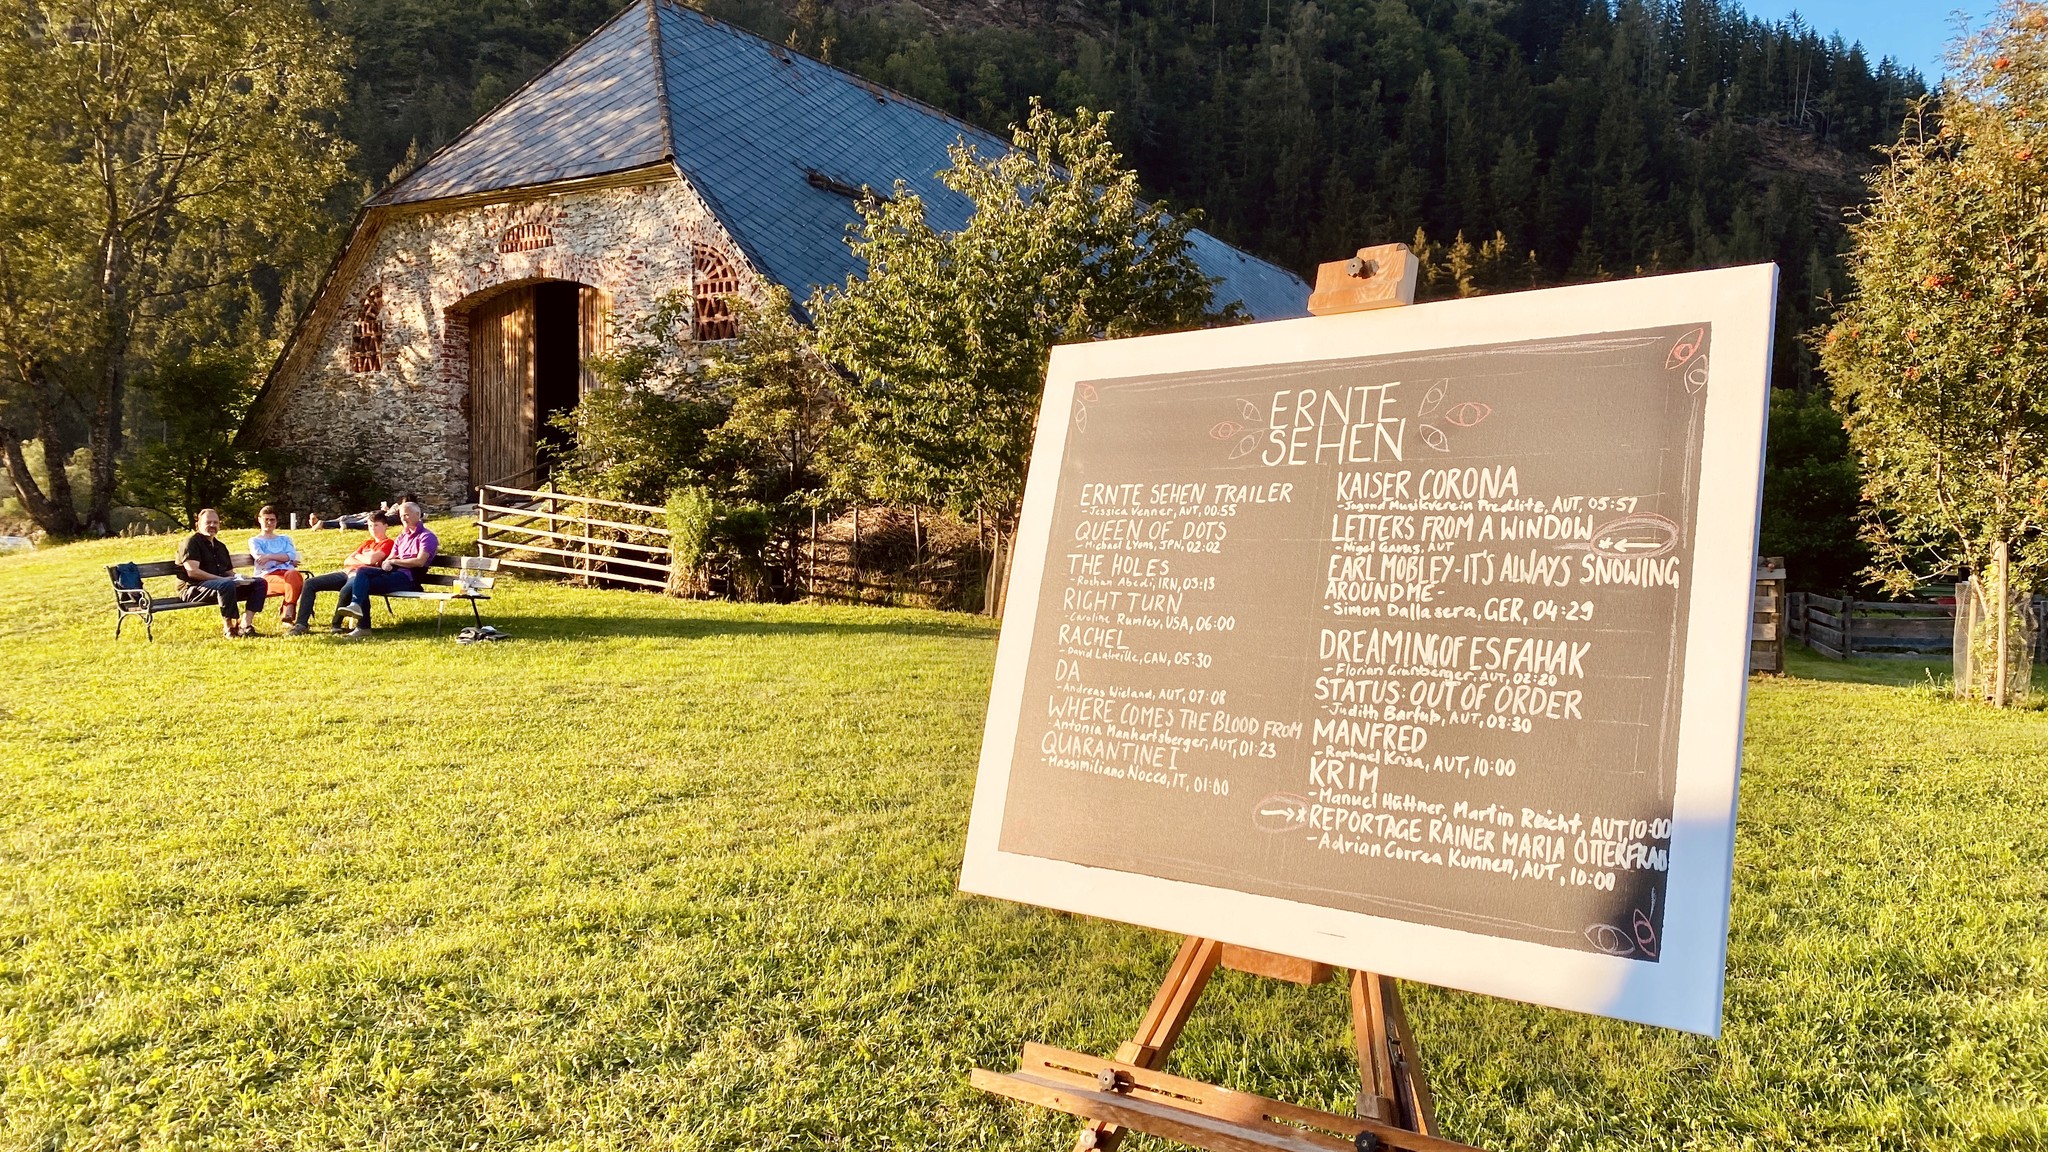 ERNTE
SEHEN
ERNTE SEHEN TRAILER
- Jessica Venner, AUT, 00:55
QUEEN OF DOTS
- Michael Lyons, JPN, 02:02
THE HOLES
- Roshan Abedi, IRN, 03:13
RIGHT TURN
- Caroline Rumley, USA, 06:00
RACHEL
- David Lafreille, CAN, 05:30
DA
- Andreas Wieland, AUT, 07:08
WHERE COMES THE BLOOD FROM
- Antonia Manhartsberger, AUT, 01:23
QUARANTINEI
- Massimiliano Nocco, IT, 01:00
KAISER CORONA
- Jugend Musikverein Predlitz, AUT, 05:57
LETTERS FROM A WINDOW * ←
- Nigel AUT
EARL MOBLEY - IT'S ALWAYS SNOWING
AROUND ME -
- Simon Dallasera, GER, 04:29
DREAMING OF ESFAHAK
- Florian Granberger, AUT, 02:20
STATUS: OUT OF ORDER
- Judith Barfuß, AUT, 08:30
MANFRED
- Raphael Krisa, AUT, 10:00
KRIM
- Manuel Hüttner, Martin Reicht, AUT 10:00
→ * REPORTAGE RAINER MARIA OTTERFRAß
- Adrian Correa Kunnen, AUT, 10:00